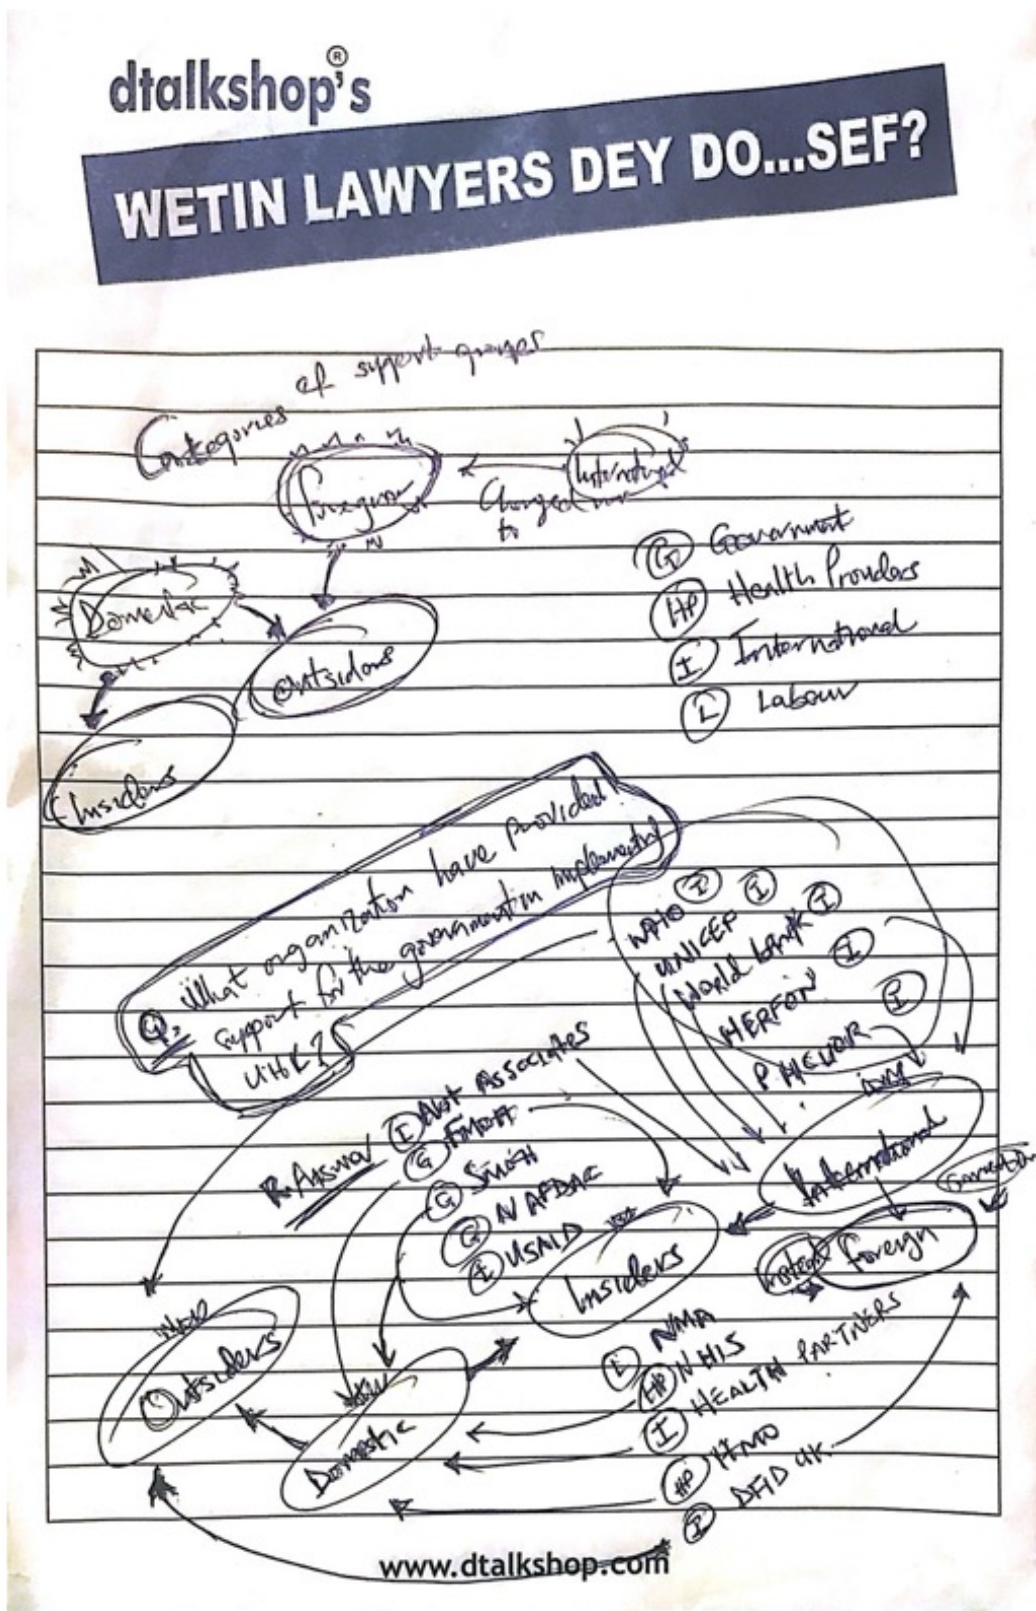 dtalkshop's®
WETIN LAWYERS DEY DO...SEF?
Categories of support groups
International
Changed
to
Foreign
Domestic
Outsiders
Insiders
G Government
HP Health Providers
I International
L Labour
Q. What organization have provided
support for the government in
UHC?
WHO I
UNICEF I
World bank I
HERFON I
I
R. Answer
I Abt Associates
G FMOH
G SMOH
G NAFDAC
I USAID
International
Insiders
instead
foreign
Outsiders
Domestic
NMA
HP NHIS
I HEALTH PARTNERS
HP HMO
I DFID UK
www.dtalkshop.com